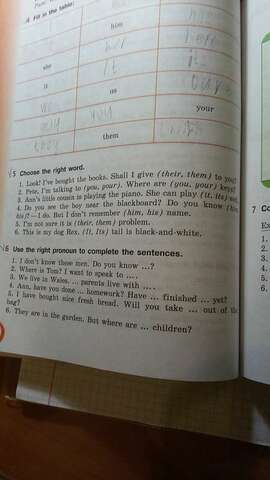 4 Fill in the table:
him
her
she
it
it
us
you
your
they
them
√5 Choose the right word.
1. Look! I've bought the books. Shall I give (their, them) to you?
2. Pete, I'm talking to (you, your). Where are (you, your) keys?
3. Ann's little cousin is playing the piano. She can play (it, its) well.
4. Do you see the boy near the blackboard? Do you know (him,
his)? — I do. But I don't remember (him, his) name.
5. I'm not sure it is (their, them) problem.
6. This is my dog Rex. (It, Its) tail is black-and-white.
√6 Use the right pronoun to complete the sentences.
1. I don't know these men. Do you know ...?
2. Where is Tom? I want to speak to ... .
3. We live in Wales, ... parents live with ... .
4. Ann, have you done ... homework? Have ... finished ... yet?
5. I have bought nice fresh bread. Will you take ... out of the
bag?
6. They are in the garden. But where are ... children?
7 Co
Ex
1.
2.
3.
4.
5.
6.